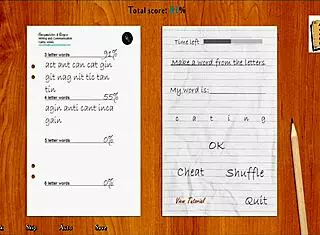 Total score: 81%
Writing and Communication
3 letter words 92%
act ant can cat gin
git nag nit tic tan
tin
4 letter words 55%
agin anti cant inca
gain
5 letter words 0%
6 letter words 0%
Time left
Make a word from the letters
My word is:
c a t i n g
OK
Cheat Shuffle
View Tutorial Quit
Skip Auto Save